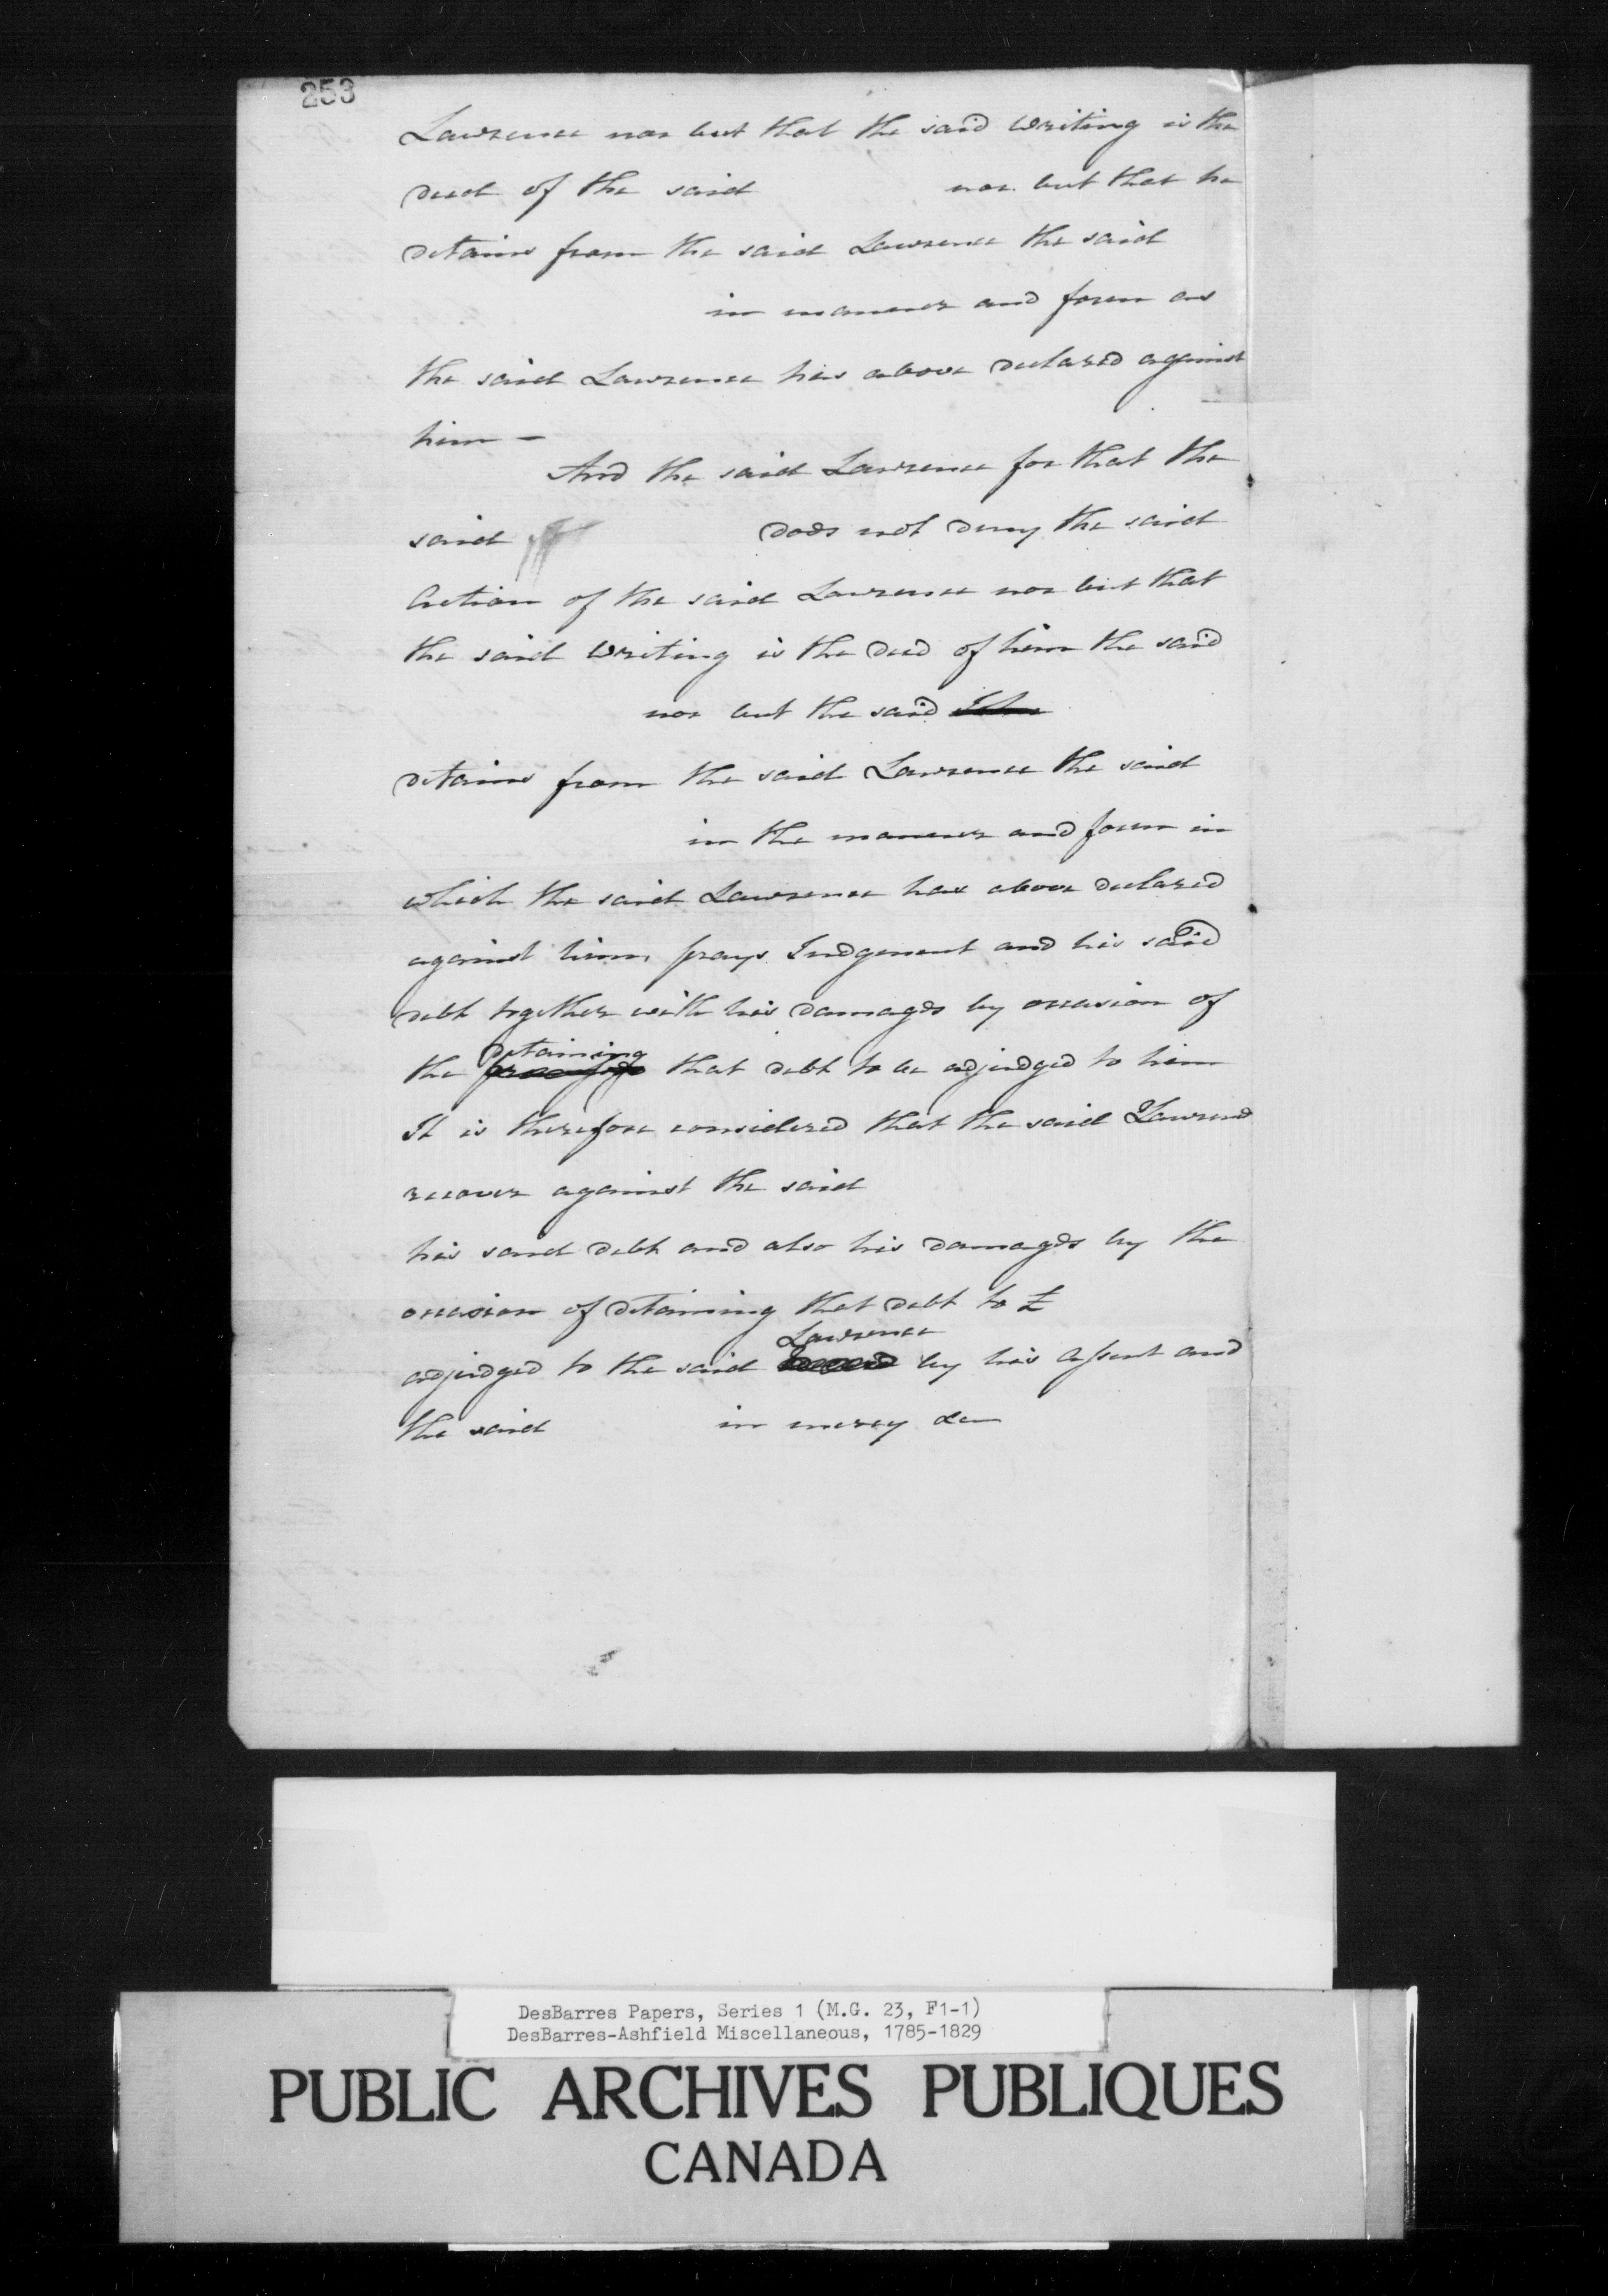 253
Lawrence nor but that the said writing is the
deed of the said nor but that he
detains from the said Lawrence the said
in manner and form as
the said Lawrence has above declared against
him —
And the said Lawrence for that the
said does not deny the said
Action of the said Lawrence nor but that
the said writing is the deed of him the said
nor but the said John
detains from the said Lawrence the said
in the manner and form in
which the said Lawrence has above declared
against him, prays Judgement and his said
debt together with his damages by occasion of
detaining
the that debt to be adjudged to him
It is therefore considered that the said Lawrence
recover against the said
his said debt and also his damages by the
occasion of detaining that debt to £
Lawrence
adjudged to the said by his assent and
the said in mercy &c
DesBarres Papers, Series 1 (M.G. 23, F1-1)
DesBarres-Ashfield Miscellaneous, 1785-1829
PUBLIC ARCHIVES PUBLIQUES
CANADA